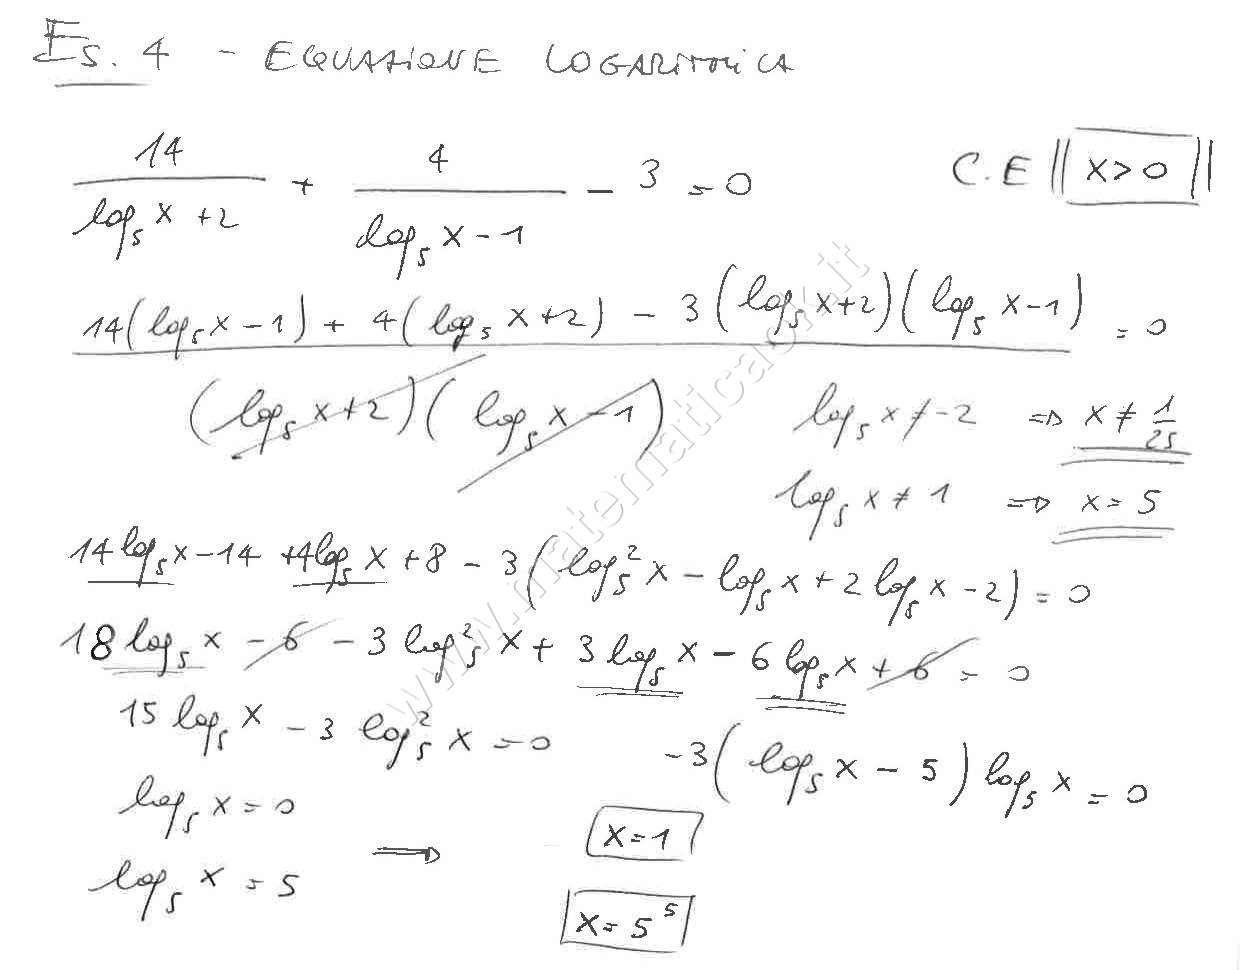 Es. 4 - EQUAZIONE LOGARITMICA
14/(log₅ x + 2) + 4/(log₅ x - 1) - 3 = 0    C.E || x > 0 ||
(14(log₅ x - 1) + 4(log₅ x + 2) - 3(log₅ x + 2)(log₅ x - 1))/((log₅ x + 2)(log₅ x - 1)) = 0
log₅ x ≠ -2 => x ≠ 1/25
log₅ x ≠ 1 => x = 5
14 log₅ x - 14 + 4 log₅ x + 8 - 3(log₅² x - log₅ x + 2 log₅ x - 2) = 0
18 log₅ x - 6 - 3 log₅² x + 3 log₅ x - 6 log₅ x + 6 = 0
15 log₅ x - 3 log₅² x = 0    -3(log₅ x - 5) log₅ x = 0
log₅ x = 0    x = 1
log₅ x = 5 => x = 5⁵
www.matematicaok.it